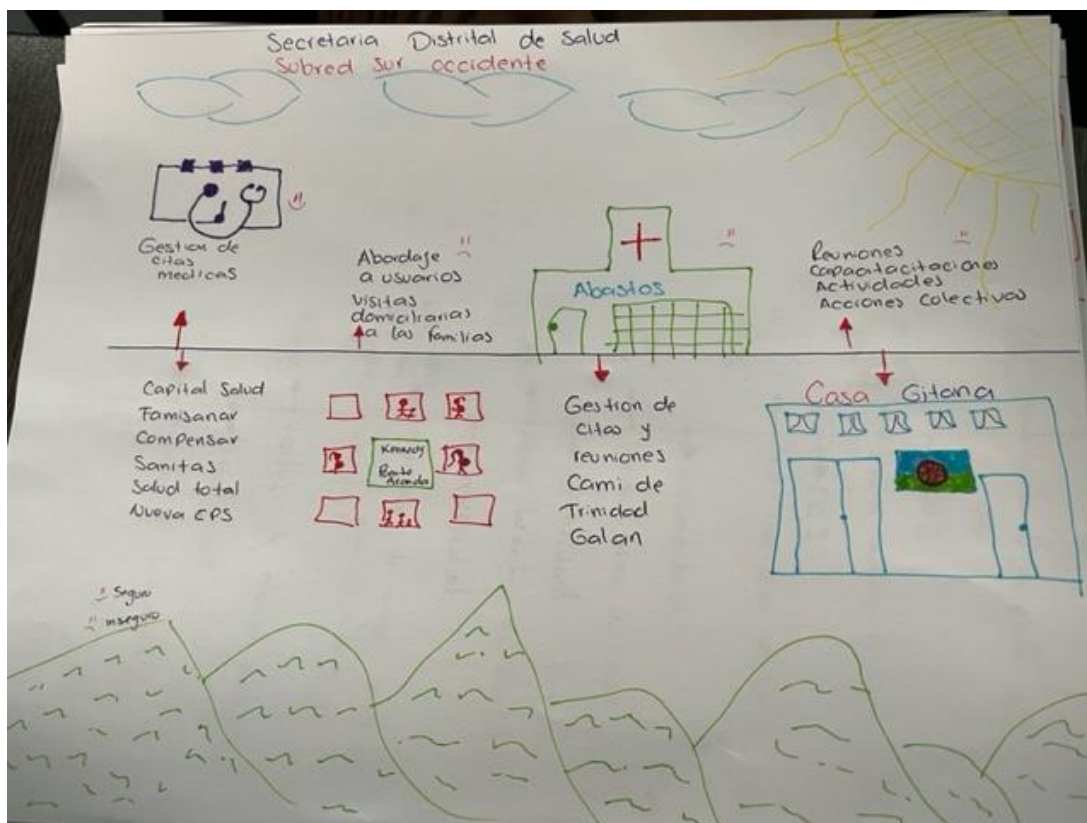 Secretaria Distrital de Salud
Subred Sur occidente
Gestion de
citas
medicas
Abordaje
a usuarios
visitas
domiciliarias
a las familias
Abastos
Reuniones
Capacatacitaciones
Actividades
Acciones Colectivas
Capital Salud
Famisanar
Compensar
Sanitas
Salud total
Nueva EPS
Kennedy
Puente
Aranda
Gestion de
citas y
reuniones
Cami de
Trinidad
Galan
Casa Gitana
Seguro
inseguro